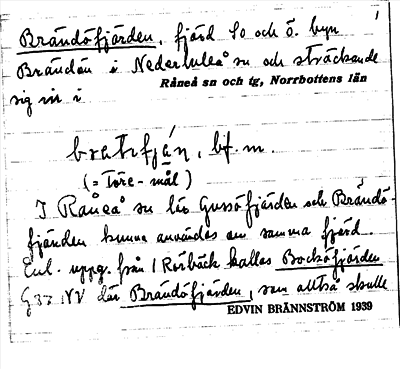 1
Brändöfjärden, fjärd So och ö. byn
Brändön i Nederluleå sn och sträckande
Råneå sn och tg, Norrbottens län
sig in i
bf. m.
(= Töre-mål)
I Råneå sn lär Gussöfjärden och Brändö-
fjärden kunna användas om samma fjärd.
Enl. uppg. från 1 Rörbäck kallas Bocköfjärden
G33 NV där Brändöfjärden, som alltså skulle
EDVIN BRÄNNSTRÖM 1939